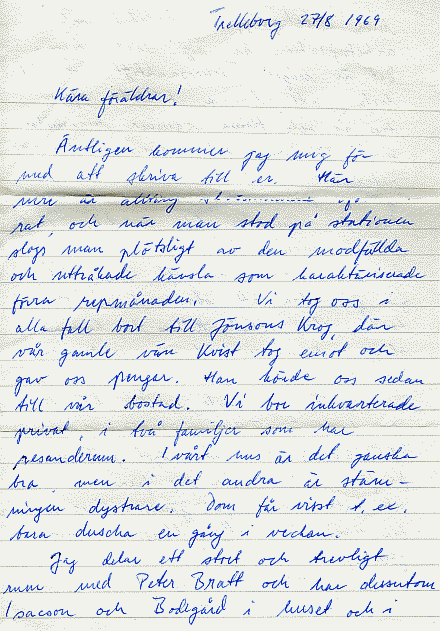 Trelleborg 27/8 1969
Kära föräldrar!
Äntligen kommer jag mig för
med att skriva till er. Här
nere är allting
rat, och när man stod på stationen
slogs man plötsligt av den modfällda
och uttråkade känsla som karaktäriserade
förra repmånaden. Vi tog oss i
alla fall bort till Jönsons Krog, där
vår gamle vän Kvist tog emot och
gav oss pengar. Han körde oss sedan
till vår bostad. Vi bor inkvarterade
privat, i två familjer som har
resanderum. I vårt hus är det ganska
bra, men i det andra är stäm-
ningen dystrare. Dom får visst t. ex.
bara duscha en gång i veckan.
Jag delar ett stort och trevligt
rum med Peter Bratt och har dessutom
Isacson och Bodegård i huset och i